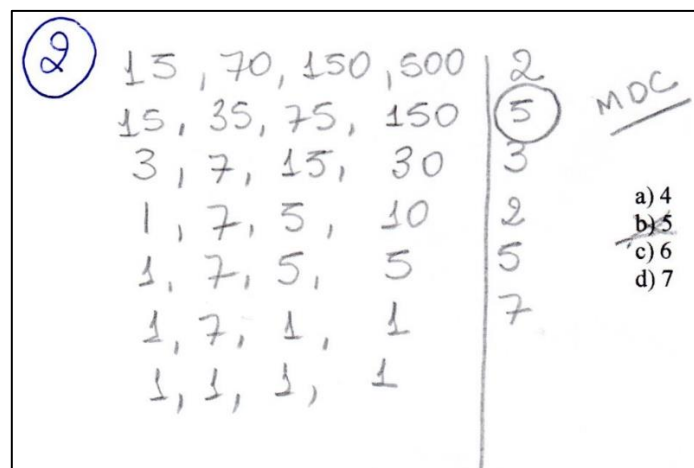 2
15, 70, 150, 500 | 2
15, 35, 75, 150 | 5 MDC
3, 7, 15, 30 | 3
1, 7, 5, 10 | 2
1, 7, 5, 5 | 5
1, 7, 1, 1 | 7
1, 1, 1, 1
a) 4
b) 5
c) 6
d) 7